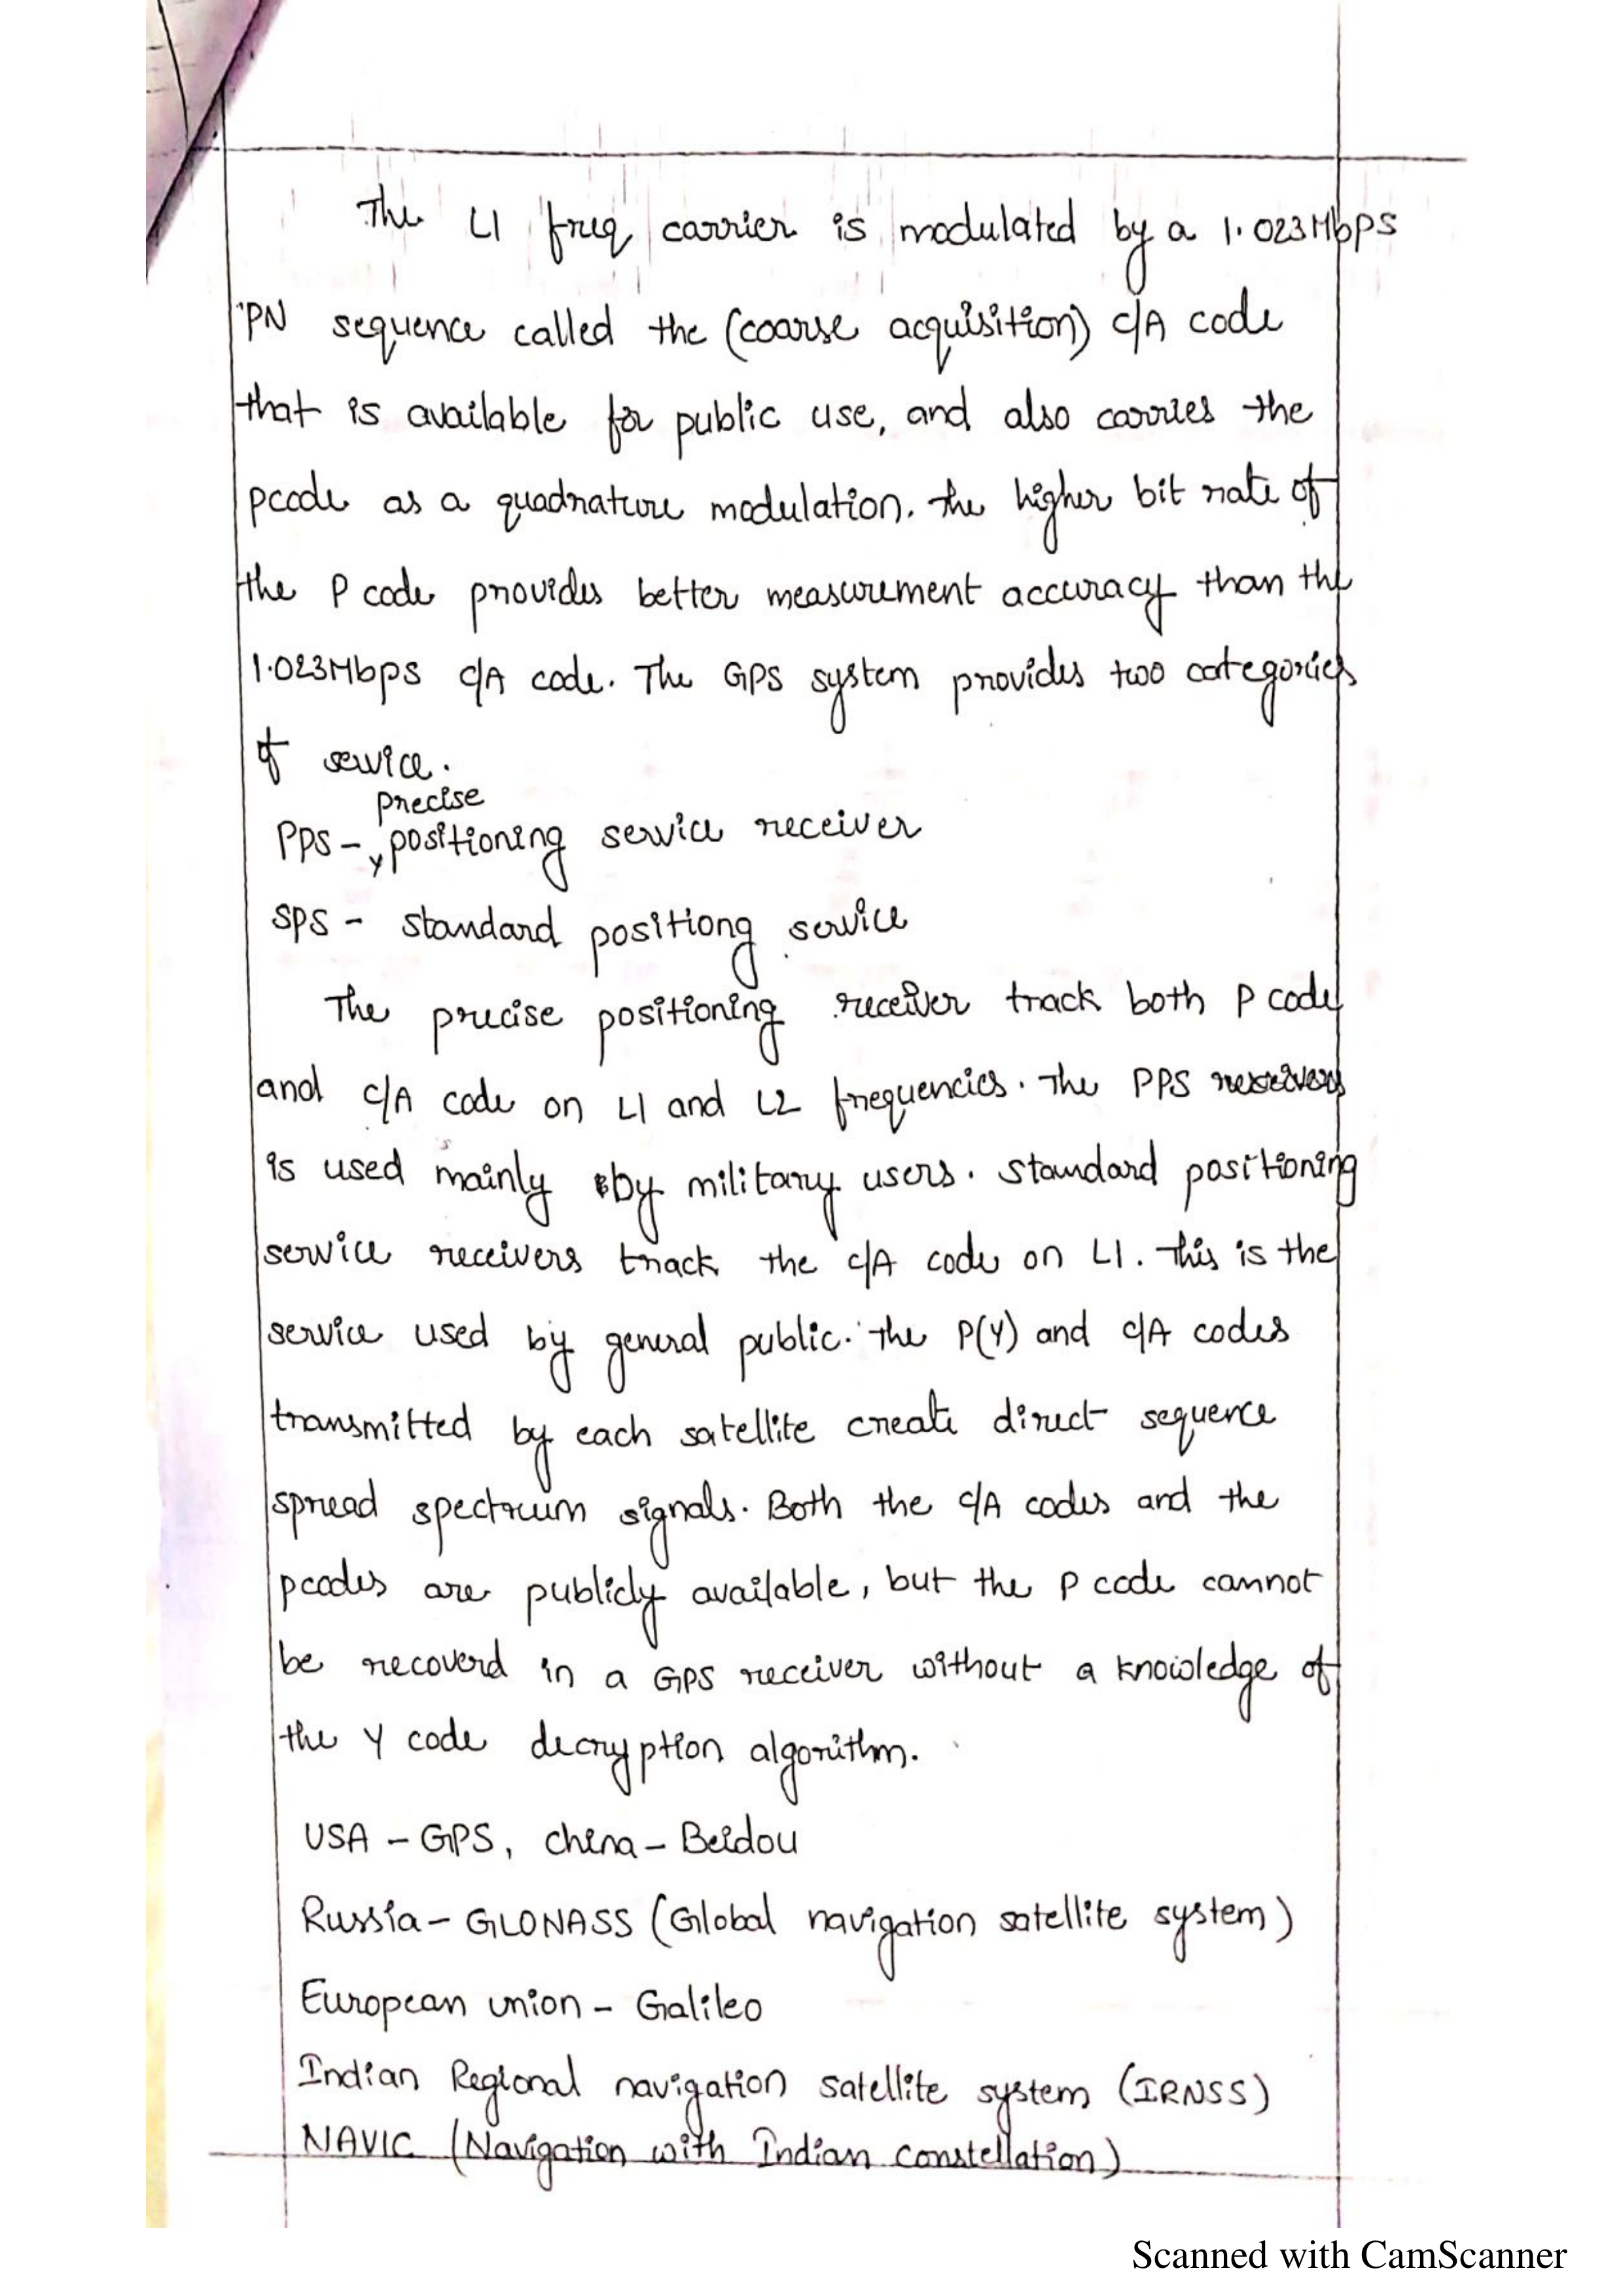 The L1 freq carrier is modulated by a 1.023Mbps
PN sequence called the (coarse acquisition) C/A code
that is available for public use, and also carries the
pcode as a quadrature modulation. The higher bit rate of
the P code provides better measurement accuracy than the
1.023Mbps C/A code. The GPS system provides two categories
of service.
precise
PPS - positioning service receiver
SPS - standard positiong service
The precise positioning receiver track both P code
and C/A code on L1 and L2 frequencies. The PPS receivers
is used mainly by military users. Standard positioning
service receivers track the C/A code on L1. This is the
service used by general public. The P(Y) and C/A codes
transmitted by each satellite create direct sequence
spread spectrum signals. Both the C/A codes and the
pcodes are publicly available, but the P code cannot
be recoverd in a GPS receiver without a knowledge of
the Y code decryption algorithm.
USA - GPS, china - Beidou
Russia - GLONASS (Global navigation satellite system)
European union - Galileo
Indian Regional navigation satellite system (IRNSS)
NAVIC (Navigation with Indian constellation)
Scanned with CamScanner